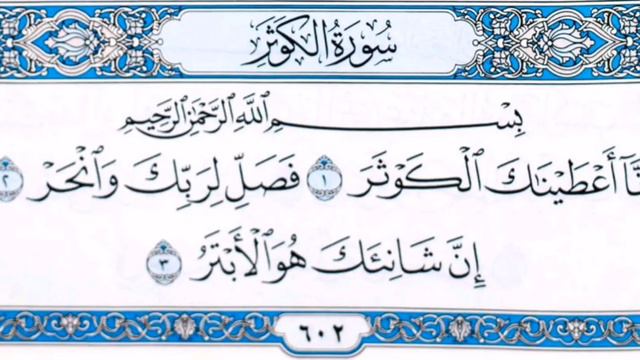 سُورَةُ الكَوْثَرِ
بِسْمِ اللَّهِ الرَّحْمَٰنِ الرَّحِيمِ
أَعْطَيْنَاكَ الْكَوْثَرَ ١ فَصَلِّ لِرَبِّكَ وَانْحَرْ ٢
إِنَّ شَانِئَكَ هُوَ الْأَبْتَرُ ٣
٦٠٢